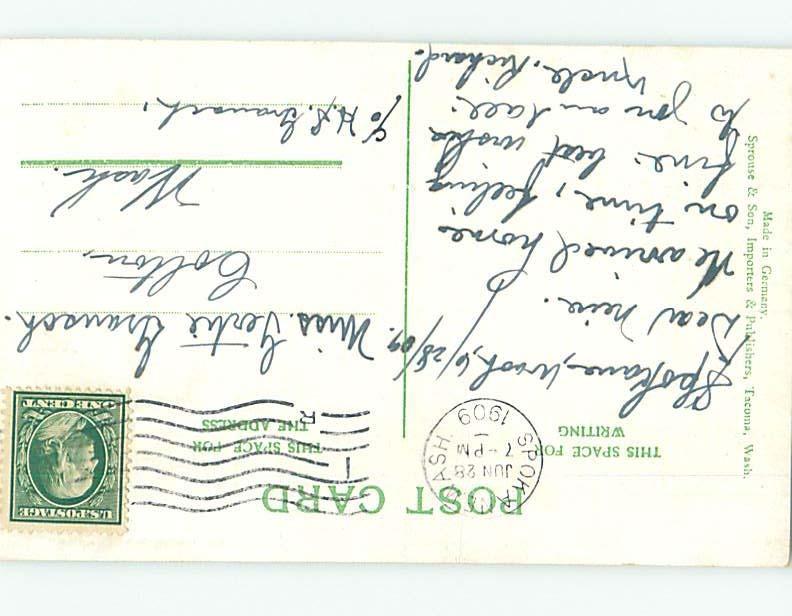 POST CARD
THIS SPACE FOR
WRITING
THIS SPACE FOR
THE ADDRESS
U.S. POSTAGE
ONE CENT
SPOKANE
WASH.
JUN 28
7-PM
1909
Spokane, Wash, 6/28/09.
Dear
We arrived home
on time, feeling
fine. best
to you an tall.
Uncle, Richard.
Miss. Gertie
Colton,
Wash.
Made in Germany.
Sprouse & Son, Importers & Publishers, Tacoma, Wash.